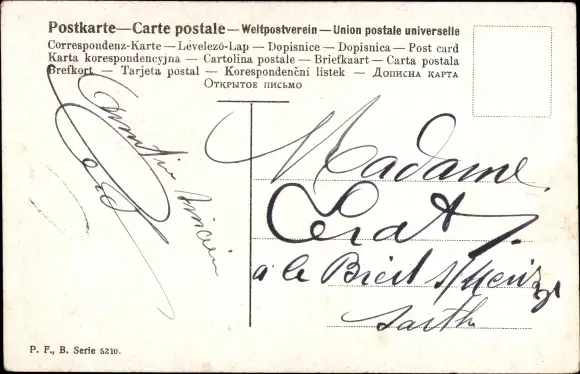 Postkarte — Carte postale — Weltpostverein — Union postale universelle
Correspondenz-Karte — Levelező-Lap — Dopisnice — Dopisnica — Post card
Karta korespondencyjna — Cartolina postale — Briefkaart — Carta postala
Brefkort — Tarjeta postal — Korespondenční listek — Дописна карта
Открытое письмо
Madame
Cerat
à le Breil s/Merize
Sarthe
P. F., B. Serie 5210.